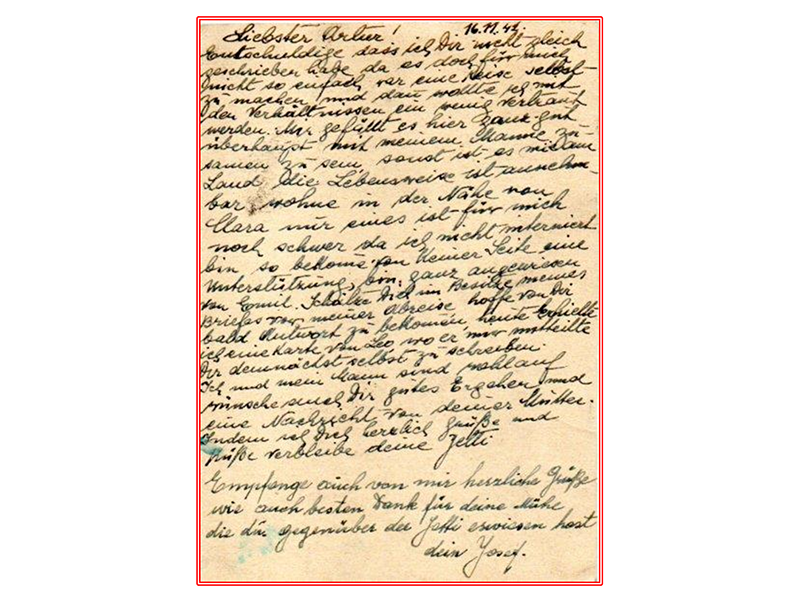 Liebster Artur! 16.11.41.
Entschuldige dass ich Dir nicht gleich
geschrieben habe da es doch für mich
nicht so einfach war eine Reise selbst
zu machen, und dan wollte ich mit
den Verhältnissen ein wenig vertraut
werden. Mir gefällt es hier ganz gut
überhaupt mit meinem Manne zu-
samen zu sein, sonst ist es mit am
Land. Die Lebensweise ist annehm-
bar, wohne in der Nähe von
Clara nur eines ist für mich
noch schwer da ich nicht interniert
bin so bekome von keiner Seite eine
Unterstützung, bin ganz angewiesen
von Emil. Schätze Dich im Besitze meines
Briefes vor meiner Abreise, hoffe von Dir
bald Antwort zu bekomen, heute erhielte
ich eine Karte von Leo, wo er mir mitteilte
Dir demnächst selbst zu schreiben.
Ich und mein Mann sind wohlauf
wünsche auch Dir gutes Ergehen und
eine Nachricht von deiner Mutter.
Indem ich Dich herzlich grüße und
küße verbleibe deine Jetti
Empfange auch von mir herzliche Grüße
wie auch besten Dank für deine Mühe
die du gegenüber der Jetti erwiesen hast
dein Josef.